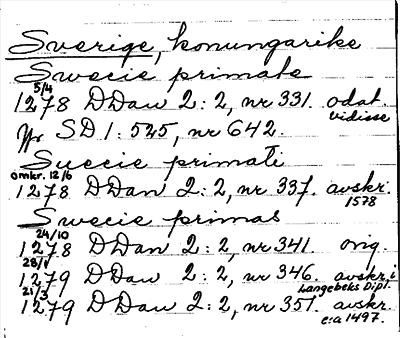 Sverige, konungarike
Swecie primate
5/4
1278 DDan 2:2, nr 331. odat.
vidisse
Jfr SD 1:525, nr 642.
Suecie primati
omkr. 12/6
1278 DDan 2:2, nr 337. avskr.
1578
Swecie primas
24/10
1278 DDan 2:2, nr 341. orig.
28/1
1279 DDan 2:2, nr 346. avskr. i
Langebeks Dipl.
21/3
1279 DDan 2:2, nr 351. avskr.
c:a 1497.